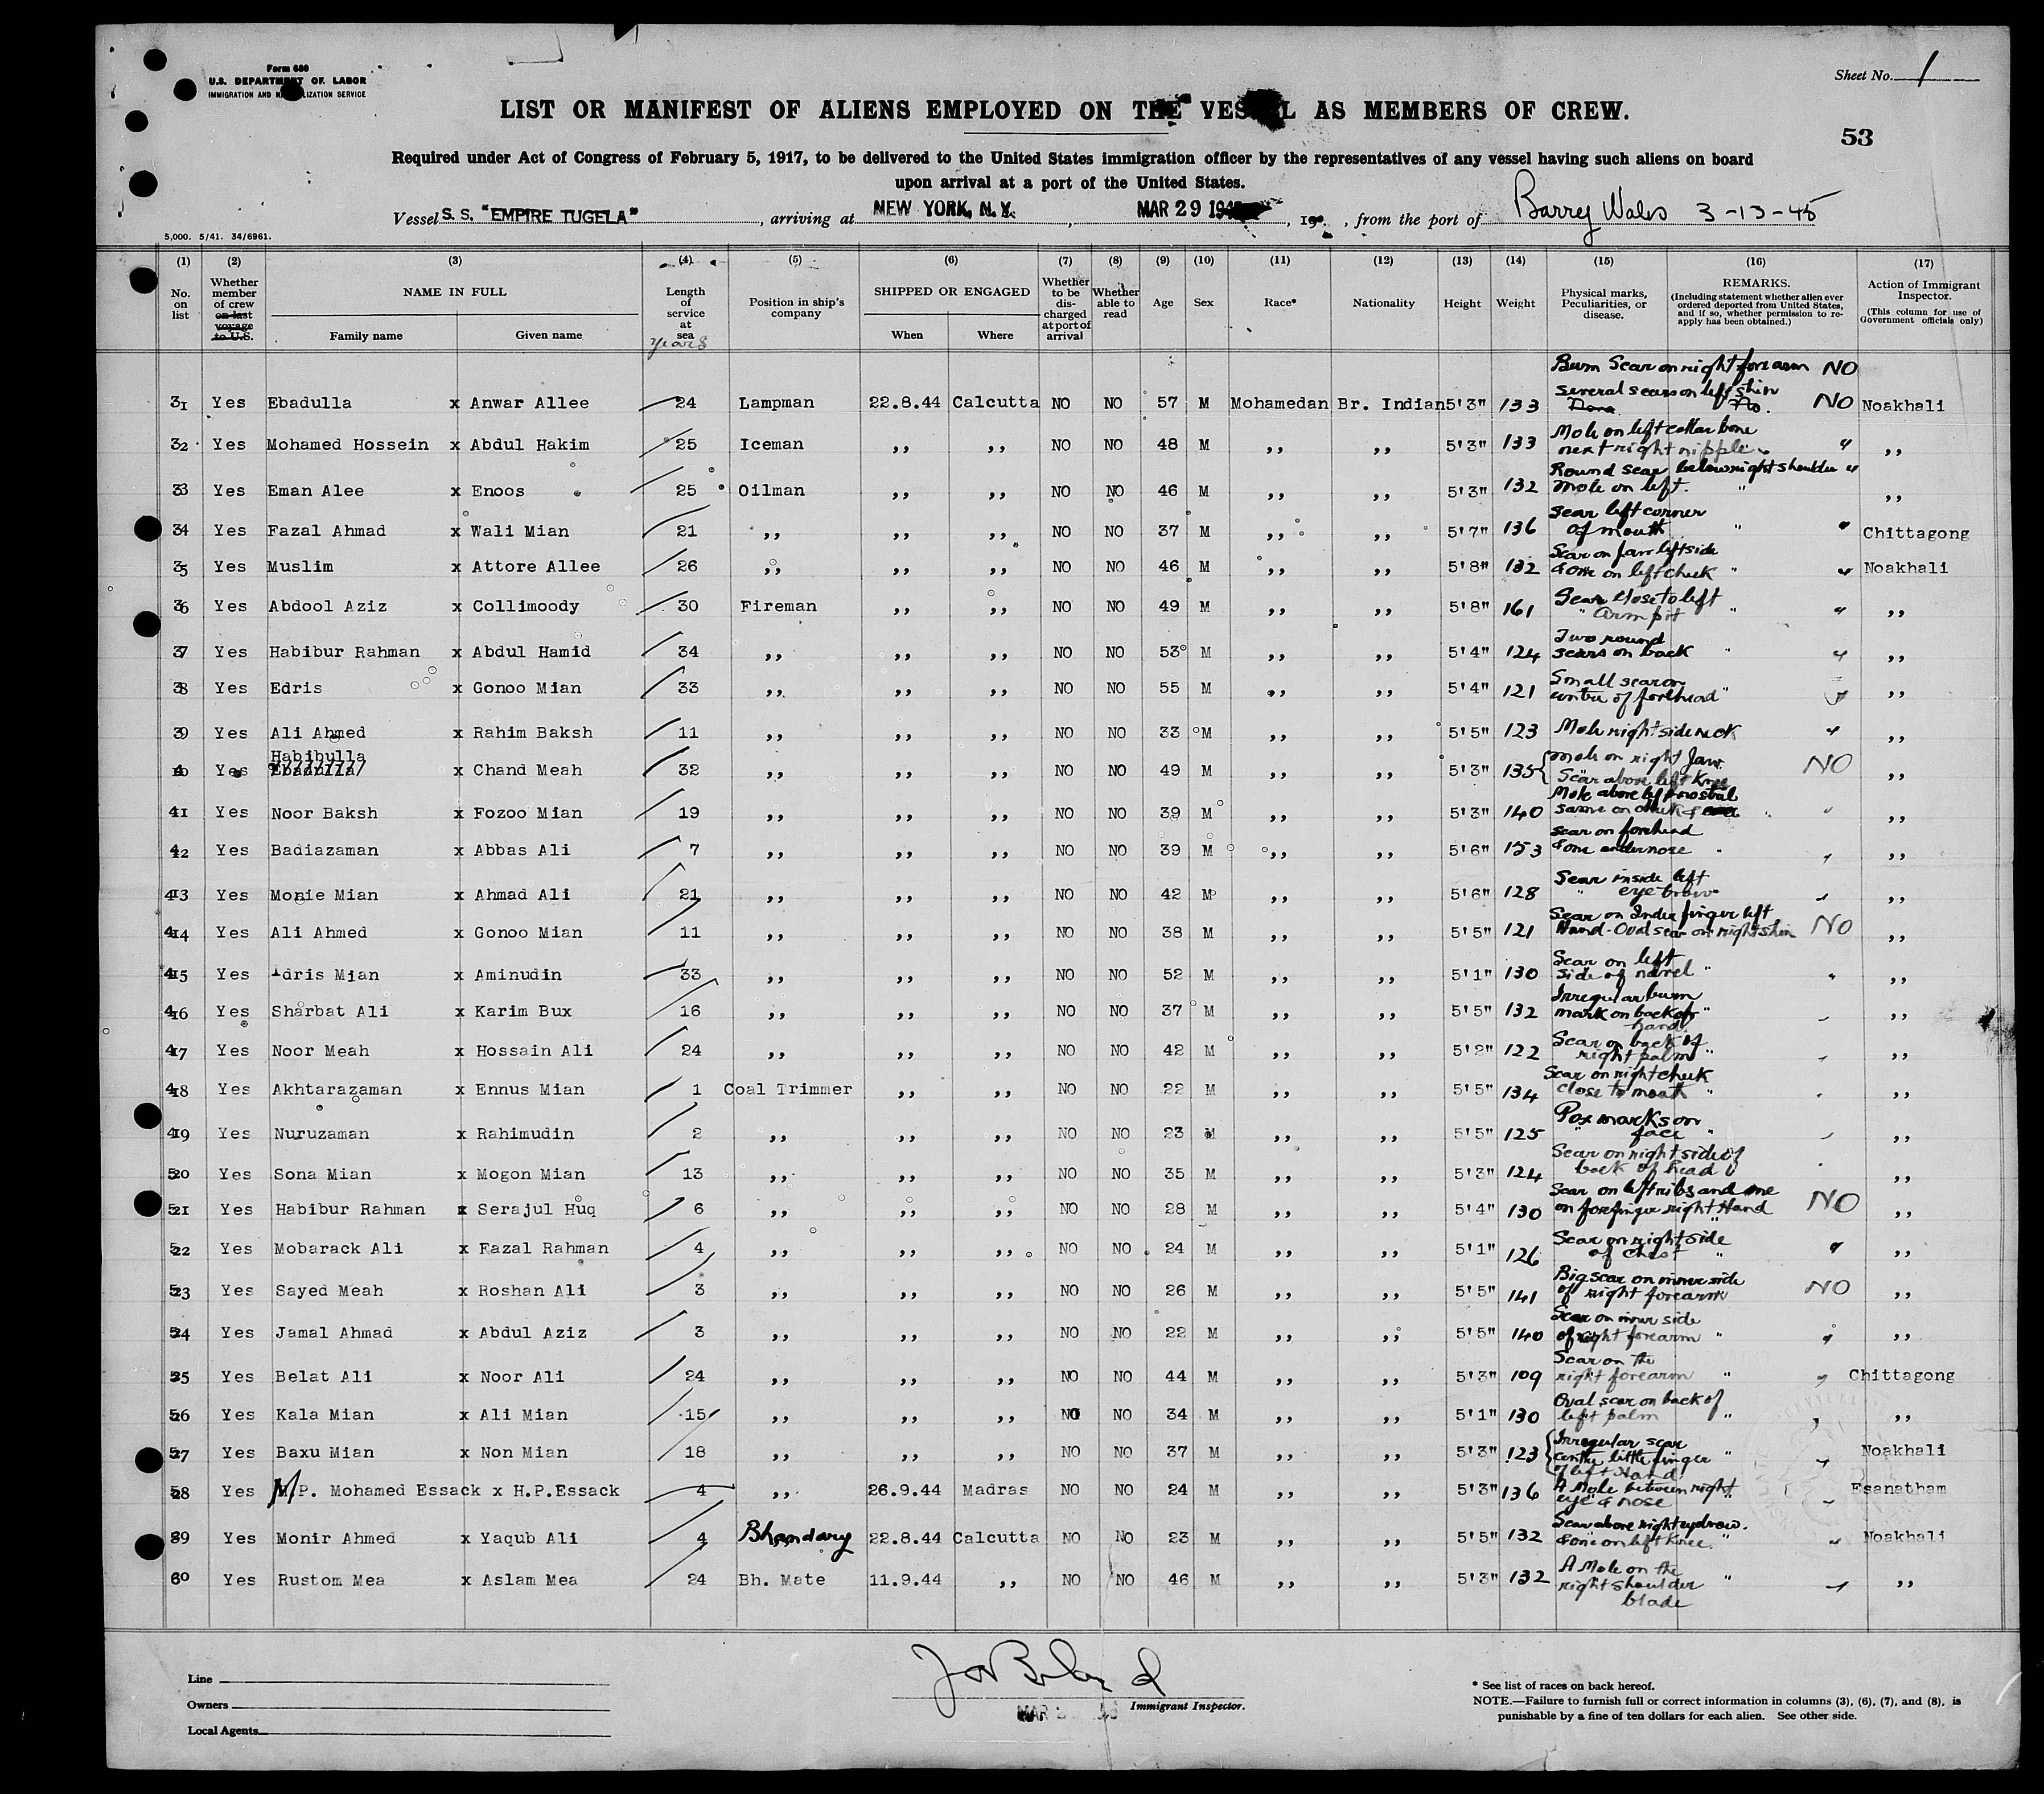 Form 680
U.S. DEPARTMENT OF LABOR
IMMIGRATION AND N LIZATION SERVICE
Sheet No. 1
LIST OR MANIFEST OF ALIENS EMPLOYED ON THE VES L AS MEMBERS OF CREW.
53
Required under Act of Congress of February 5, 1917, to be delivered to the United States immigration officer by the representatives of any vessel having such aliens on board
upon arrival at a port of the United States.
Vessel S. S. "EMPIRE TUGELA" , arriving at NEW YORK, N.Y. , MAR 29 194 , 19 , from the port of Barry Wales 3-13-45
5,000. 5/41. 34/6961.
(1) (2) (3) (4) (5) (6) (7) (8) (9) (10) (11) (12) (13) (14) (15) (16) (17)
No. on list
Whether member of crew on last voyage to U.S.
NAME IN FULL
Family name Given name
Length of service at sea
years
Position in ship's company
SHIPPED OR ENGAGED
When Where
Whether to be discharged at port of arrival
Whether able to read
Age
Sex
Race*
Nationality
Height
Weight
Physical marks, Peculiarities, or disease.
REMARKS.
(Including statement whether alien ever ordered deported from United States, and if so, whether permission to re-apply has been obtained.)
Action of Immigrant Inspector.
(This column for use of Government officials only)
Burn Scar on right forearm NO
31 Yes Ebadulla x Anwar Allee 24 Lampman 22.8.44 Calcutta NO NO 57 M Mohamedan Br. Indian 5'3" 133 several scars on left shin NO Noakhali
32 Yes Mohamed Hossein x Abdul Hakim 25 Iceman ,, ,, NO NO 48 M ,, ,, 5'3" 133 Mole on left collar bone next right nipple " ,,
33 Yes Eman Alee x Enoos 25 Oilman ,, ,, NO NO 46 M ,, ,, 5'3" 132 Round scar below right shoulder Mole on left. " " ,,
34 Yes Fazal Ahmad x Wali Mian 21 ,, ,, ,, NO NO 37 M ,, ,, 5'7" 136 Scar left corner of mouth " " Chittagong
35 Yes Muslim x Attore Allee 26 ,, ,, ,, NO NO 46 M ,, ,, 5'8" 132 Scar on Jaw left side & one on left cheek " " Noakhali
36 Yes Abdool Aziz x Collimoody 30 Fireman ,, ,, NO NO 49 M ,, ,, 5'8" 161 Scar close to left Arm pit " " ,,
37 Yes Habibur Rahman x Abdul Hamid 34 ,, ,, ,, NO NO 53 M ,, ,, 5'4" 124 Two round scars on back " " ,,
38 Yes Edris x Gonoo Mian 33 ,, ,, ,, NO NO 55 M ,, ,, 5'4" 121 Small scar on center of forehead " " ,,
39 Yes Ali Ahmed x Rahim Baksh 11 ,, ,, ,, NO NO 33 M ,, ,, 5'5" 123 Mole right side neck " ,,
Habibulla
40 Yes Ebadulla x Chand Meah 32 ,, ,, ,, NO NO 49 M ,, ,, 5'3" 135 Mole on right Jaw Scar above left Knee NO ,,
41 Yes Noor Baksh x Fozoo Mian 19 ,, ,, ,, NO NO 39 M ,, ,, 5'3" 140 Mole above left nostril same on cheek " ,,
42 Yes Badiazaman x Abbas Ali 7 ,, ,, ,, NO NO 39 M ,, ,, 5'6" 153 scar on forehead & one under nose " " ,,
43 Yes Monie Mian x Ahmad Ali 21 ,, ,, ,, NO NO 42 M ,, ,, 5'6" 128 Scar inside left eye brow " " ,,
44 Yes Ali Ahmed x Gonoo Mian 11 ,, ,, ,, NO NO 38 M ,, ,, 5'5" 121 Scar on Index finger left Hand - Oval scar on right shin NO ,,
45 Yes Idris Mian x Aminudin 33 ,, ,, ,, NO NO 52 M ,, ,, 5'1" 130 Scar on left side of navel " " ,,
46 Yes Sharbat Ali x Karim Bux 16 ,, ,, ,, NO NO 37 M ,, ,, 5'5" 132 Irregular burn mark on back of hand " ,,
47 Yes Noor Meah x Hossain Ali 24 ,, ,, ,, NO NO 42 M ,, ,, 5'2" 122 Scar on back of right palm " ,,
48 Yes Akhtarazaman x Ennus Mian 1 Coal Trimmer ,, ,, NO NO 22 M ,, ,, 5'5" 134 Scar on right cheek close to mouth " ,,
49 Yes Nuruzaman x Rahimudin 2 ,, ,, ,, NO NO 23 M ,, ,, 5'5" 125 Pox marks on face " ,,
50 Yes Sona Mian x Mogon Mian 13 ,, ,, ,, NO NO 35 M ,, ,, 5'3" 124 Scar on right side of back of head ,,
51 Yes Habibur Rahman x Serajul Huq 6 ,, ,, ,, NO NO 28 M ,, ,, 5'4" 130 Scar on left ribs and one on forefinger right Hand NO ,,
52 Yes Mobarack Ali x Fazal Rahman 4 ,, ,, ,, NO NO 24 M ,, ,, 5'1" 126 Scar on right side of chest " " ,,
53 Yes Sayed Meah x Roshan Ali 3 ,, ,, ,, NO NO 26 M ,, ,, 5'5" 141 Big scar on inner side of right forearm NO ,,
54 Yes Jamal Ahmad x Abdul Aziz 3 ,, ,, ,, NO NO 22 M ,, ,, 5'5" 140 Scar on inner side of right forearm " " ,,
55 Yes Belat Ali x Noor Ali 24 ,, ,, ,, NO NO 44 M ,, ,, 5'3" 109 Scar on the right forearm " " Chittagong
56 Yes Kala Mian x Ali Mian 15 ,, ,, ,, NO NO 34 M ,, ,, 5'1" 130 Oval scar on back of left palm " " ,,
57 Yes Baxu Mian x Non Mian 18 ,, ,, ,, NO NO 37 M ,, ,, 5'3" 123 Irregular scar centre little finger of left Hand " " Noakhali
58 Yes M.P. Mohamed Essack x H.P.Essack 4 ,, 26.9.44 Madras NO NO 24 M ,, ,, 5'3" 136 A Mole between right eye & nose " " Esanatham
59 Yes Monir Ahmed x Yaqub Ali 4 Bhandary 22.8.44 Calcutta NO NO 23 M ,, ,, 5'5" 132 Scar above right eyebrow. & one on left Knee. " " Noakhali
60 Yes Rustom Mea x Aslam Mea 24 Bh. Mate 11.9.44 ,, NO NO 46 M ,, ,, 5'3" 132 A Mole on the right shoulder blade " " ,,
Line
Owners
Local Agents
Immigrant Inspector.
MAR
* See list of races on back hereof.
NOTE.—Failure to furnish full or correct information in columns (3), (6), (7), and (8), is
punishable by a fine of ten dollars for each alien. See other side.